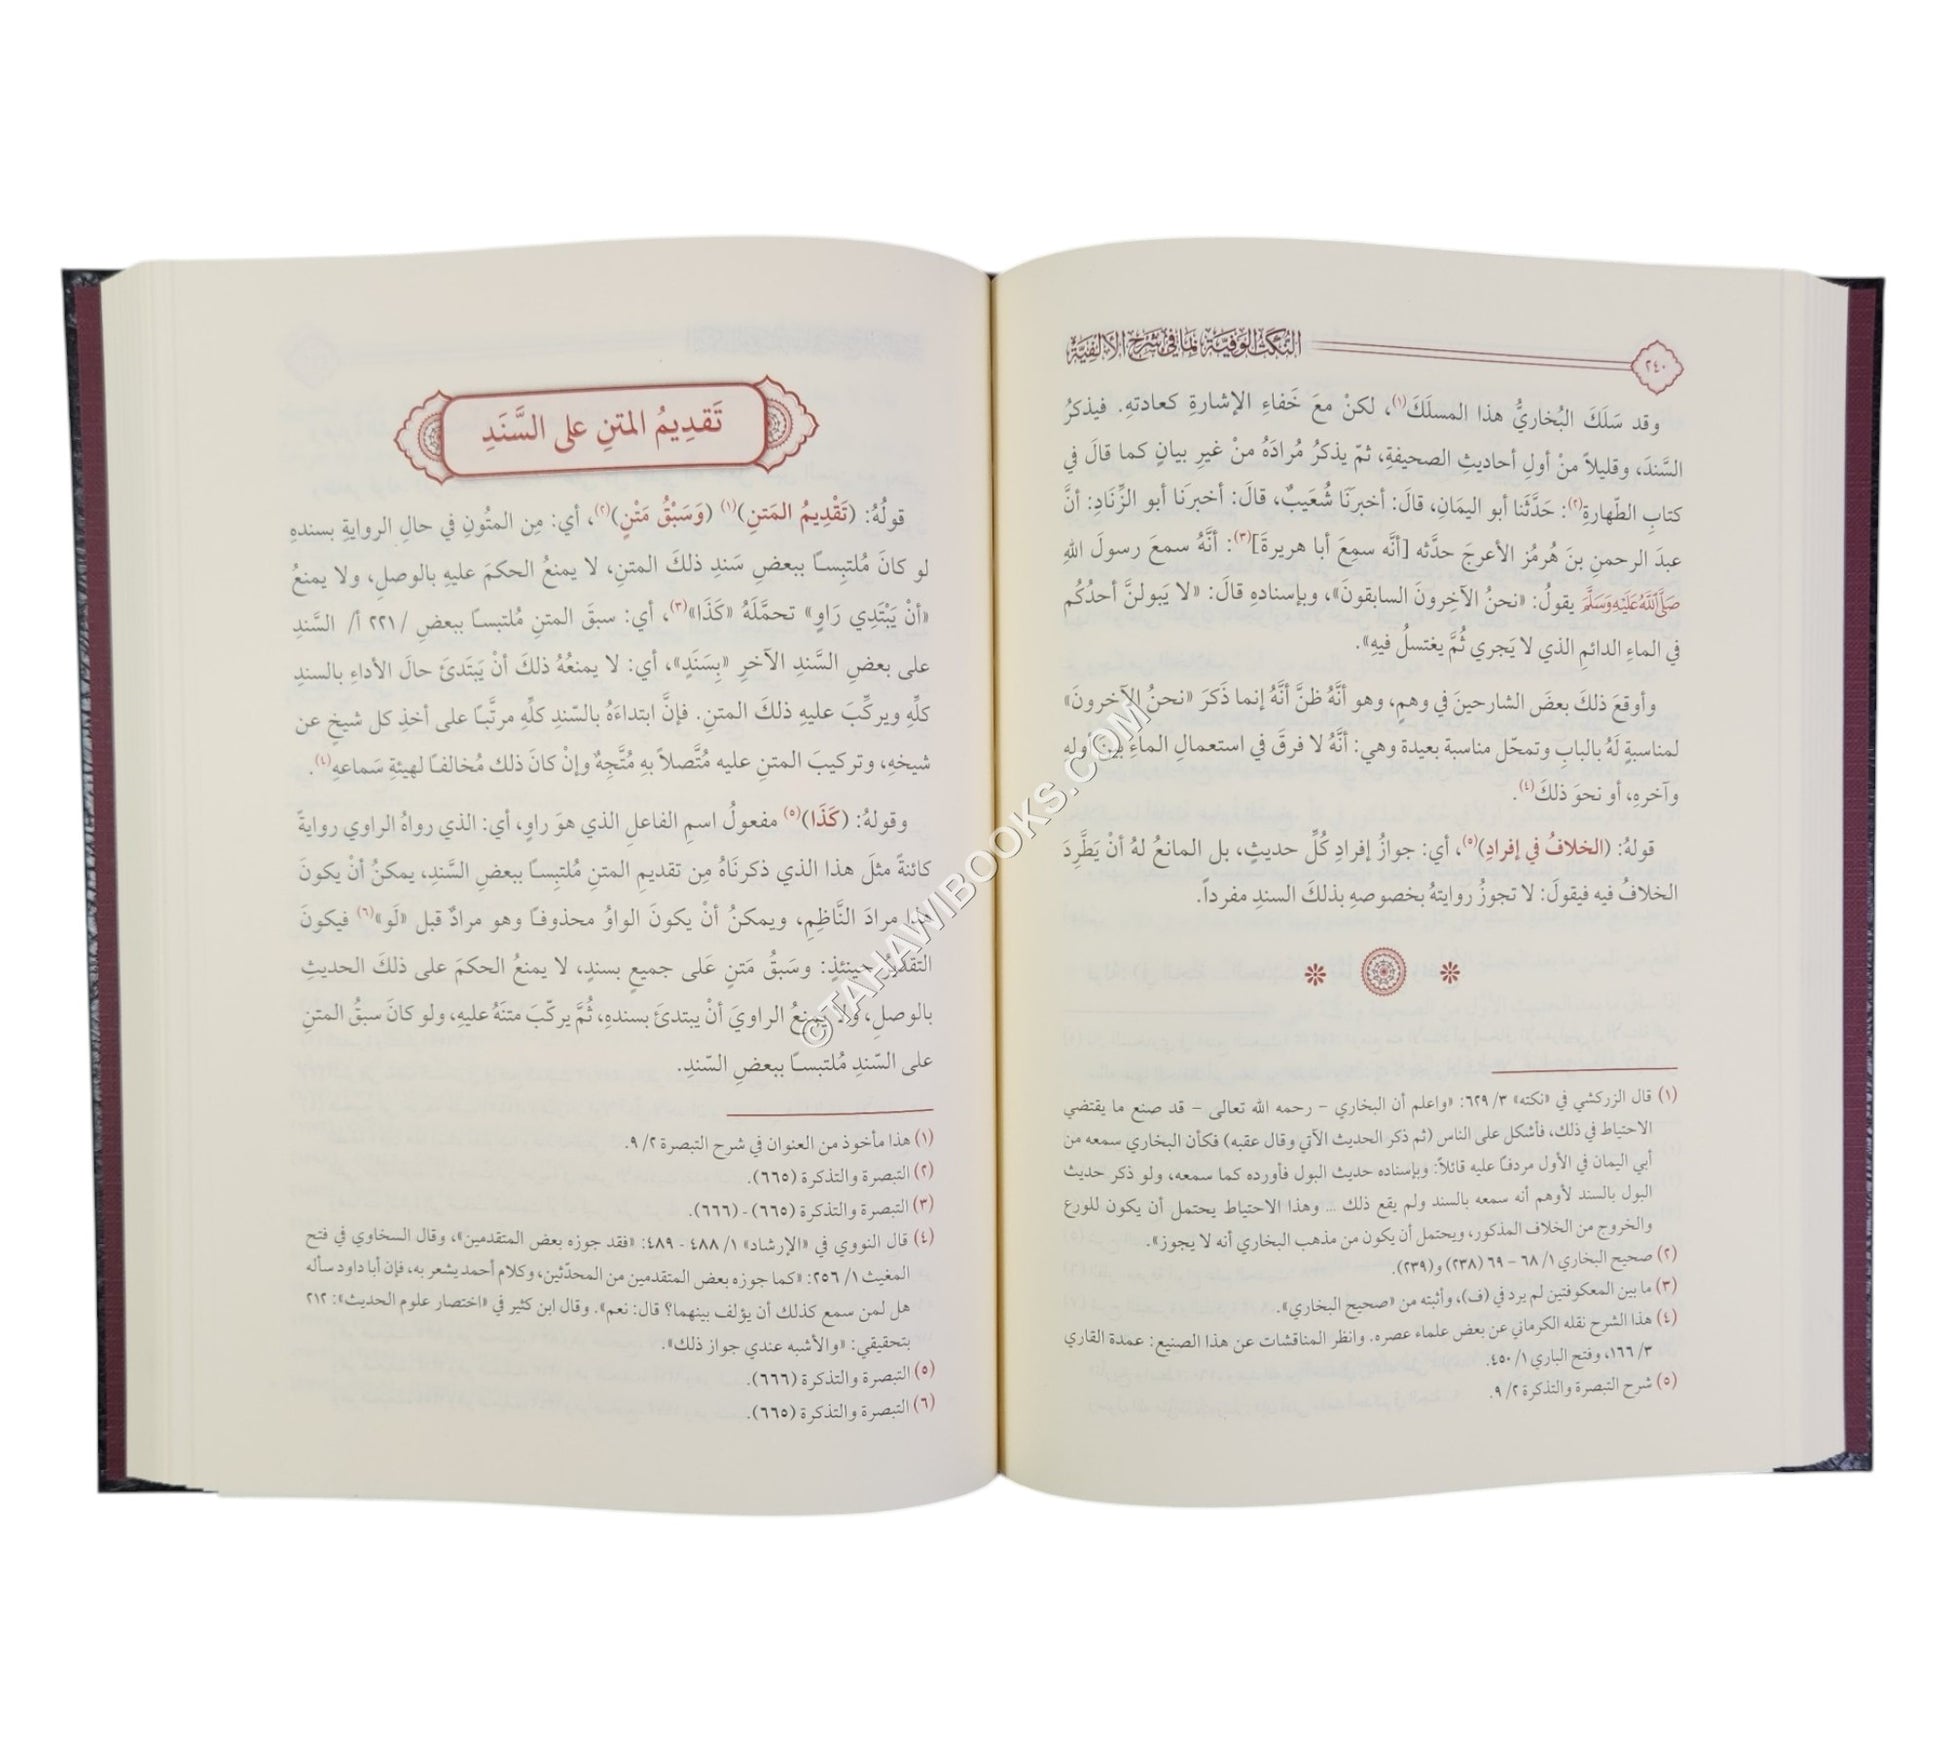 ٢٤٠
النُّكَتُ الوَفِيَّة بِمَا فِي شَرْحِ الأَلْفِيَّة
وقد سَلَكَ البُخاريُّ هذا المسلَكَ(١)، لكنْ معَ خَفاءِ الإشارةِ كعادتهِ. فيذكرُ
السَّندَ، وقليلاً منْ أولِ أحاديثِ الصحيفةِ، ثمّ يذكرُ مُرادَهُ منْ غيرِ بيانٍ كما قالَ في
كتابِ الطّهارةِ(٢): حَدَّثَنا أبو اليمَانِ، قالَ: أخبرَنَا شُعَيبٌ، قالَ: أخبرَنا أبو الزِّنَادِ: أنَّ
عبدَ الرحمنِ بنَ هُرمُز الأعرجَ حدَّثه [أنَّه سمِعَ أبا هريرةَ](٣): أنَّهُ سمعَ رسولَ اللهِ
صَلَّى اللَّهُ عَلَيْهِ وَسَلَّمَ يقولُ: «نحنُ الآخِرونَ السابقونَ»، وبإسنادهِ قالَ: «لا يَبولنَّ أحدُكُم
في الماءِ الدائمِ الذي لا يَجري ثُمَّ يغتسلُ فيهِ».
وأوقعَ ذلكَ بعضَ الشارحينَ في وهمٍ، وهو أنَّهُ ظنَّ أنَّهُ إنما ذَكرَ «نحنُ الآخرونَ»
لمناسبةٍ لَهُ بالبابِ وتمحّل مناسبة بعيدة وهي: أنَّهُ لا فرقَ في استعمالِ الماءِ بين أوله
وآخرهِ، أو نحوَ ذلكَ(٤).
قولهُ: (الخلافُ في إفرادِ)(٥)، أي: جوازُ إفرادِ كُلِّ حديثٍ، بل المانعُ لهُ أنْ يَطَّرِدَ
الخلافُ فيه فيقولَ: لا تجوزُ روايتهُ بخصوصهِ بذلكَ السندِ مفرداً.
(١) قال الزركشي في «نكته» ٣/ ٦٢٩: «واعلم أن البخاري - رحمه الله تعالى - قد صنع ما يقتضي
الاحتياط في ذلك، فأشكل على الناس (ثم ذكر الحديث الآتي وقال عقبه) فكأن البخاري سمعه من
أبي اليمان في الأول مردفًا عليه قائلاً: وبإسناده حديث البول فأورده كما سمعه، ولو ذكر حديث
البول بالسند لأوهم أنه سمعه بالسند ولم يقع ذلك ... وهذا الاحتياط يحتمل أن يكون للورع
والخروج من الخلاف المذكور، ويحتمل أن يكون من مذهب البخاري أنه لا يجوز».
(٢) صحيح البخاري ١/ ٦٨ - ٦٩ (٢٣٨) و(٢٣٩).
(٣) ما بين المعكوفتين لم يرد في (ف)، وأثبته من «صحيح البخاري».
(٤) هذا الشرح نقله الكرماني عن بعض علماء عصره. وانظر المناقشات عن هذا الصنيع: عمدة القاري
٣/ ١٦٦، وفتح الباري ١/ ٤٥٠.
(٥) شرح التبصرة والتذكرة ٢/ ٩.
تَقدِيمُ المَتنِ على السَّنَدِ
قولُهُ: (تَقْدِيمُ المَتنِ)(١) (وَسَبْقُ مَتْنٍ)(٢)، أي: مِن المتُونِ في حالِ الروايةِ بسندهِ
لو كانَ مُلتبِسًا ببعضِ سَندِ ذلكَ المتنِ، لا يمنعُ الحكمَ عليهِ بالوصلِ، ولا يمنعُ
«أنْ يَبْتَدِي رَاوٍ» تحمَّلَهُ «كَذَا»(٣)، أي: سبقَ المتنِ مُلتبسًا ببعضِ /٢٢١ أ/ السَّندِ
على بعضِ السَّندِ الآخرِ «بِسَنَدٍ»، أي: لا يمنعُهُ ذلكَ أنْ يَبَتَدئَ حالَ الأداءِ بالسندِ
كلِّهِ ويركِّبَ عليهِ ذلكَ المتنِ. فإنَّ ابتداءَهُ بالسّندِ كلِّهِ مرتَّبًا على أخذِ كل شيخٍ عن
شيخهِ، وتركيبَ المتنِ عليه مُتَّصلاً بهِ مُتَّجِهٌ وإنْ كانَ ذلك مُخالفًا لهيئةِ سَماعهِ(٤).
وقولهُ: (كَذَا)(٥) مفعولُ اسمِ الفاعلِ الذي هوَ راوٍ، أي: الذي رواهُ الراوي روايةً
كائنةً مثلَ هذا الذي ذكرنَاهُ مِن تقديمِ المتنِ مُلتبِسًا ببعضِ السَّندِ، يمكنُ أنْ يكونَ
هذا مرادَ النَّاظِمِ، ويمكنُ أنْ يكونَ الواوُ محذوفًا وهو مرادٌ قبل «لَو»(٦) فيكونَ
التقديرُ حينئذٍ: وسَبقُ مَتنٍ عَلى جميعٍ بسندٍ، لا يمنعُ الحكمَ على ذلكَ الحديثِ
بالوصلِ، ولا يمنعُ الراويَ أنْ يبتدئَ بسندهِ، ثُمَّ يركّبَ متنَهُ عليهِ، ولو كانَ سبقُ المتنِ
على السّندِ مُلتبسًا ببعضِ السّندِ.
(١) هذا مأخوذ من العنوان في شرح التبصرة ٢/ ٩.
(٢) التبصرة والتذكرة (٦٦٥).
(٣) التبصرة والتذكرة (٦٦٥) - (٦٦٦).
(٤) قال النووي في «الإرشاد» ١/ ٤٨٨ - ٤٨٩: «فقد جوزه بعض المتقدمين»، وقال السخاوي في فتح
المغيث ١/ ٢٥٦: «كما جوزه بعض المتقدمين من المحدّثين، وكلام أحمد يشعر به، فإن أبا داود سأله
هل لمن سمع كذلك أن يؤلف بينهما؟ قال: نعم». وقال ابن كثير في «اختصار علوم الحديث»: ٢١٢
بتحقيقي: «والأشبه عندي جواز ذلك».
(٥) التبصرة والتذكرة (٦٦٦).
(٦) التبصرة والتذكرة (٦٦٥).
©TAHAWIBOOKS.COM